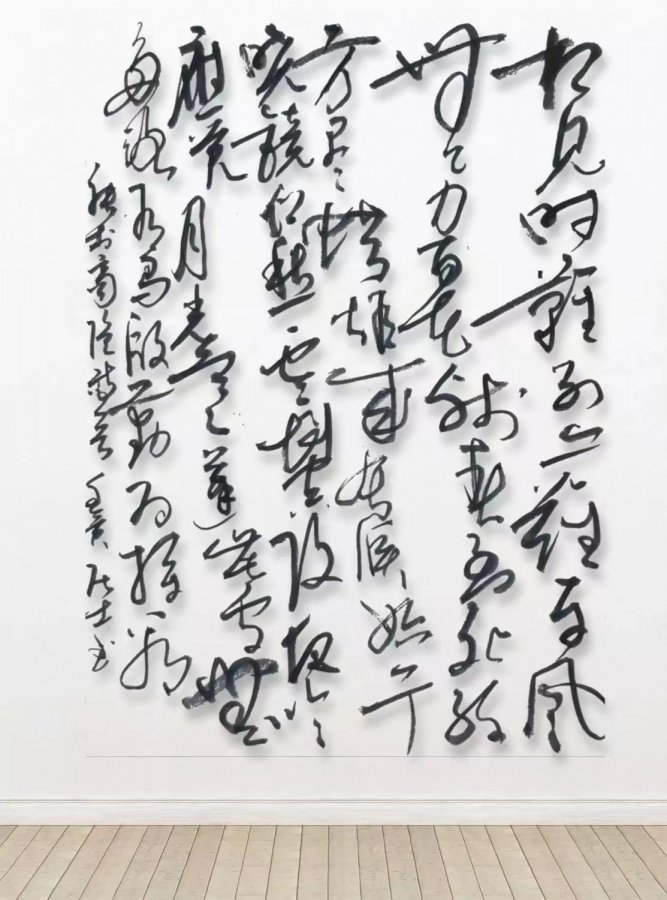 相见时難别亦難东风
無力百花残春到死丝
方尽蜡炬成灰泪始干
晓镜但愁云鬓改夜吟
应觉月光寒蓬山此去無
多路青鸟殷勤为探看
李商隐诗 壬寅 居士书